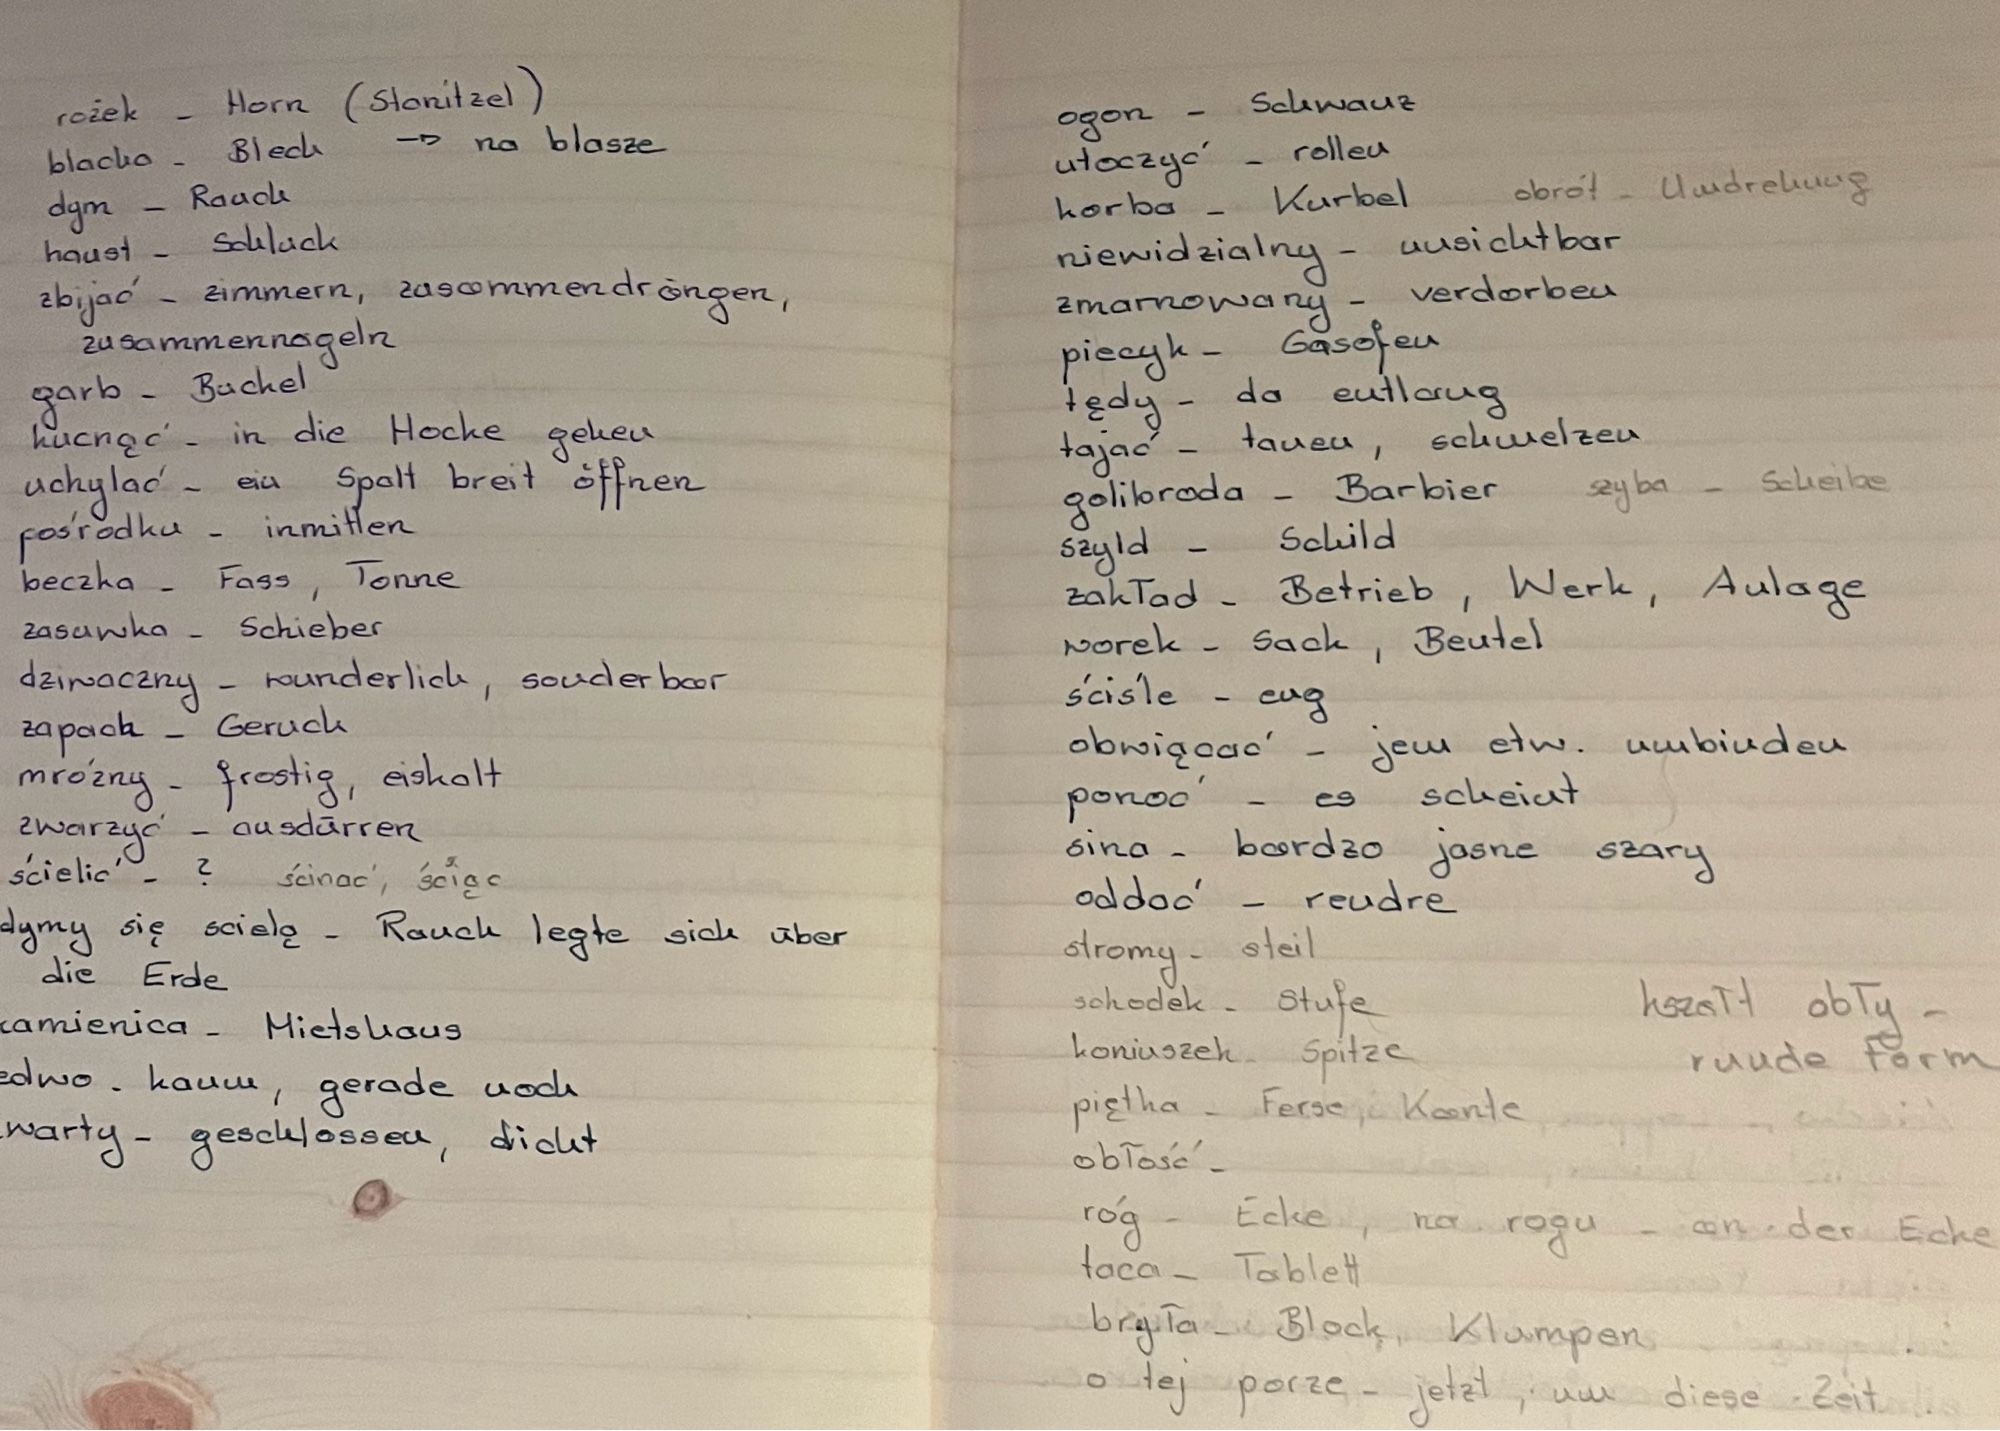 rożek - Horn (Stanitzel)
blacha - Blech → na blasze
dym - Rauch
haust - Schluck
zbijać - zimmern, zusammendrängen,
zusammennageln
garb - Buckel
kucnąć - in die Hocke gehen
uchylać - ein Spalt breit öffnen
pośrodku - inmitten
beczka - Fass, Tonne
zasuwka - Schieber
dziwaczny - wunderlich, sonderbar
zapach - Geruch
mroźny - frostig, eiskalt
zwarzyć - ausdürren
ścielić - ? ścinać, ściąc
dymy się scielą - Rauch legte sich über
die Erde
kamienica - Mietshaus
edwo - kaum, gerade noch
warty - geschlossen, dicht
ogon - Schwanz
utoczyć - rollen
korba - Kurbel obrót - Umdrehung
niewidzialny - unsichtbar
zmarnowany - verdorben
piecyk - Gasofen
tędy - da entlang
tajać - tauen, schmelzen
golibroda - Barbier szyba - Scheibe
szyld - Schild
zakład - Betrieb, Werk, Anlage
worek - Sack, Beutel
ściśle - eng
obwiącać - jem etw. umbinden
ponoć - es scheint
sina - bardzo jasne szary
oddać - rendre
stromy - steil
schodek - Stufe kszałt obły -
koniuszek - Spitze runde Form
piętka - Ferse, Kante
obłość -
róg - Ecke, na rogu - an der Ecke
taca - Tablett
bryła - Block, Klumpen
o tej porze - jetzt, um diese Zeit